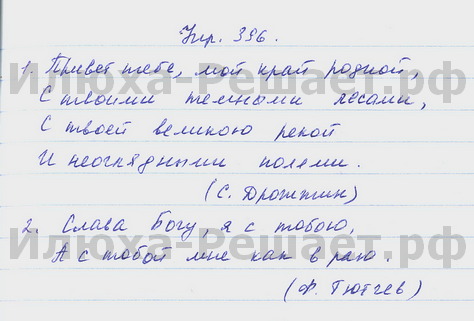 Упр. 396.
1. Привет тебе, мой край родной,
Илюха-Решает.рф
С твоими темными лесами,
С твоей великою рекой
И неоглядными полями.
(С. Дрожжин)
2. Слава Богу, я с тобою,
Илюха-Решает.рф
А с тобой мне как в раю.
(Ф. Тютчев)